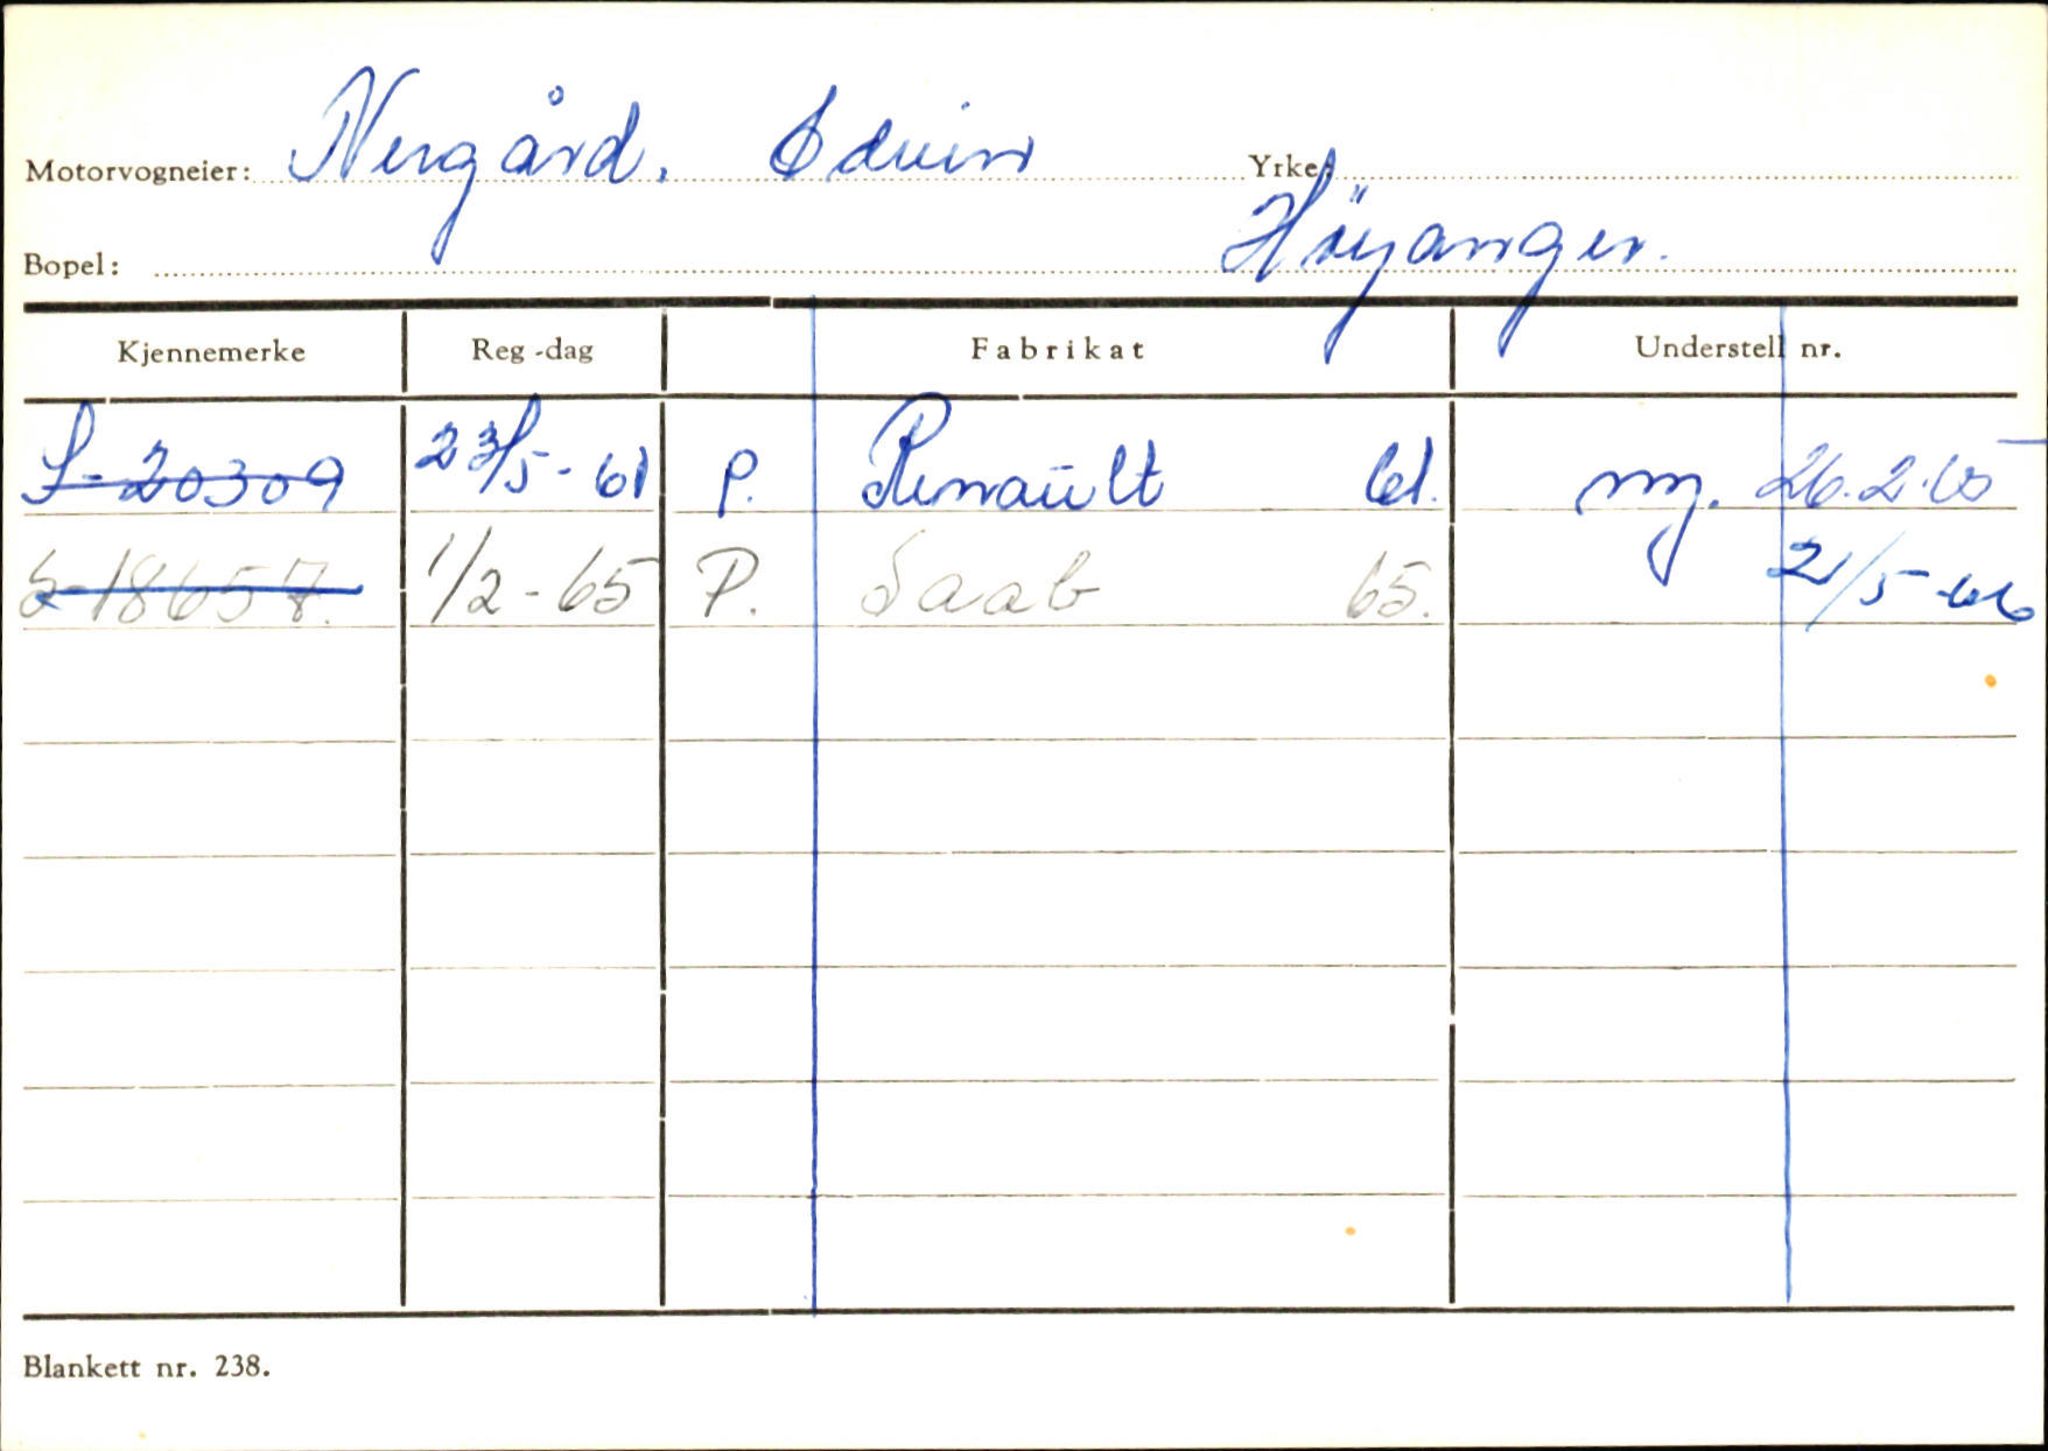 Motorvogneier: Nergård, Odvin Yrke:
Bopel: Höyanger.
Kjennemerke Reg-dag Fabrikat Understell nr.
S-20309 23/5-61 P. Renault 61. ny. 26.2.65
S-18657. 1/2-65 P. Saab 65. 21/5-66
Blankett nr. 238.